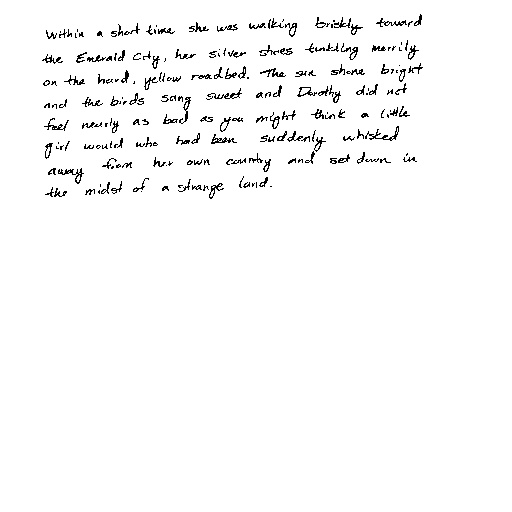 Within a short time she was walking briskly toward
the Emerald City, her silver shoes tinkling merrily
on the hard, yellow roadbed. The sun shone bright
and the birds sang sweet and Dorothy did not
feel nearly as bad as you might think a little
girl would who had been suddenly whisked
away from her own country and set down in
the midst of a strange land.